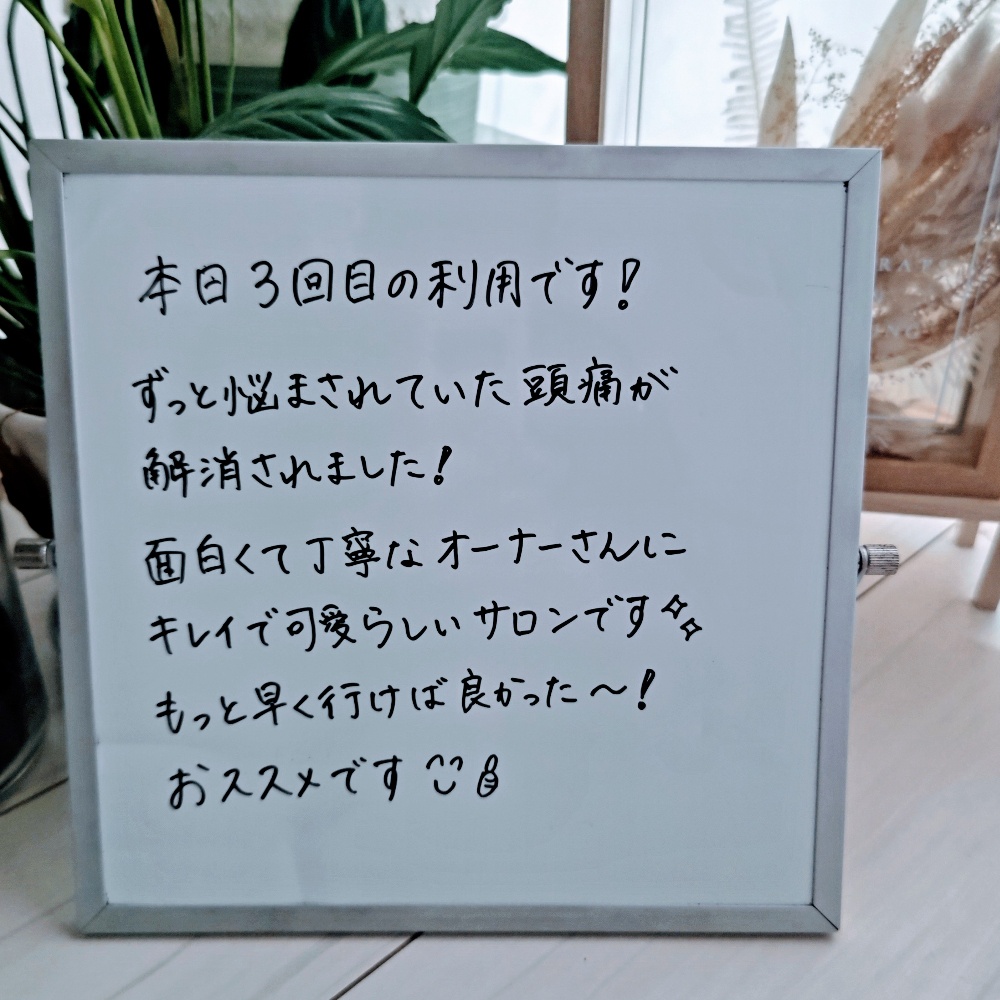 本日3回目の利用です!
ずっと悩まされていた頭痛が
解消されました!
面白くて丁寧なオーナーさんに
キレイで可愛らしいサロンです✧✧
もっと早く行けば良かった〜!
おススメです